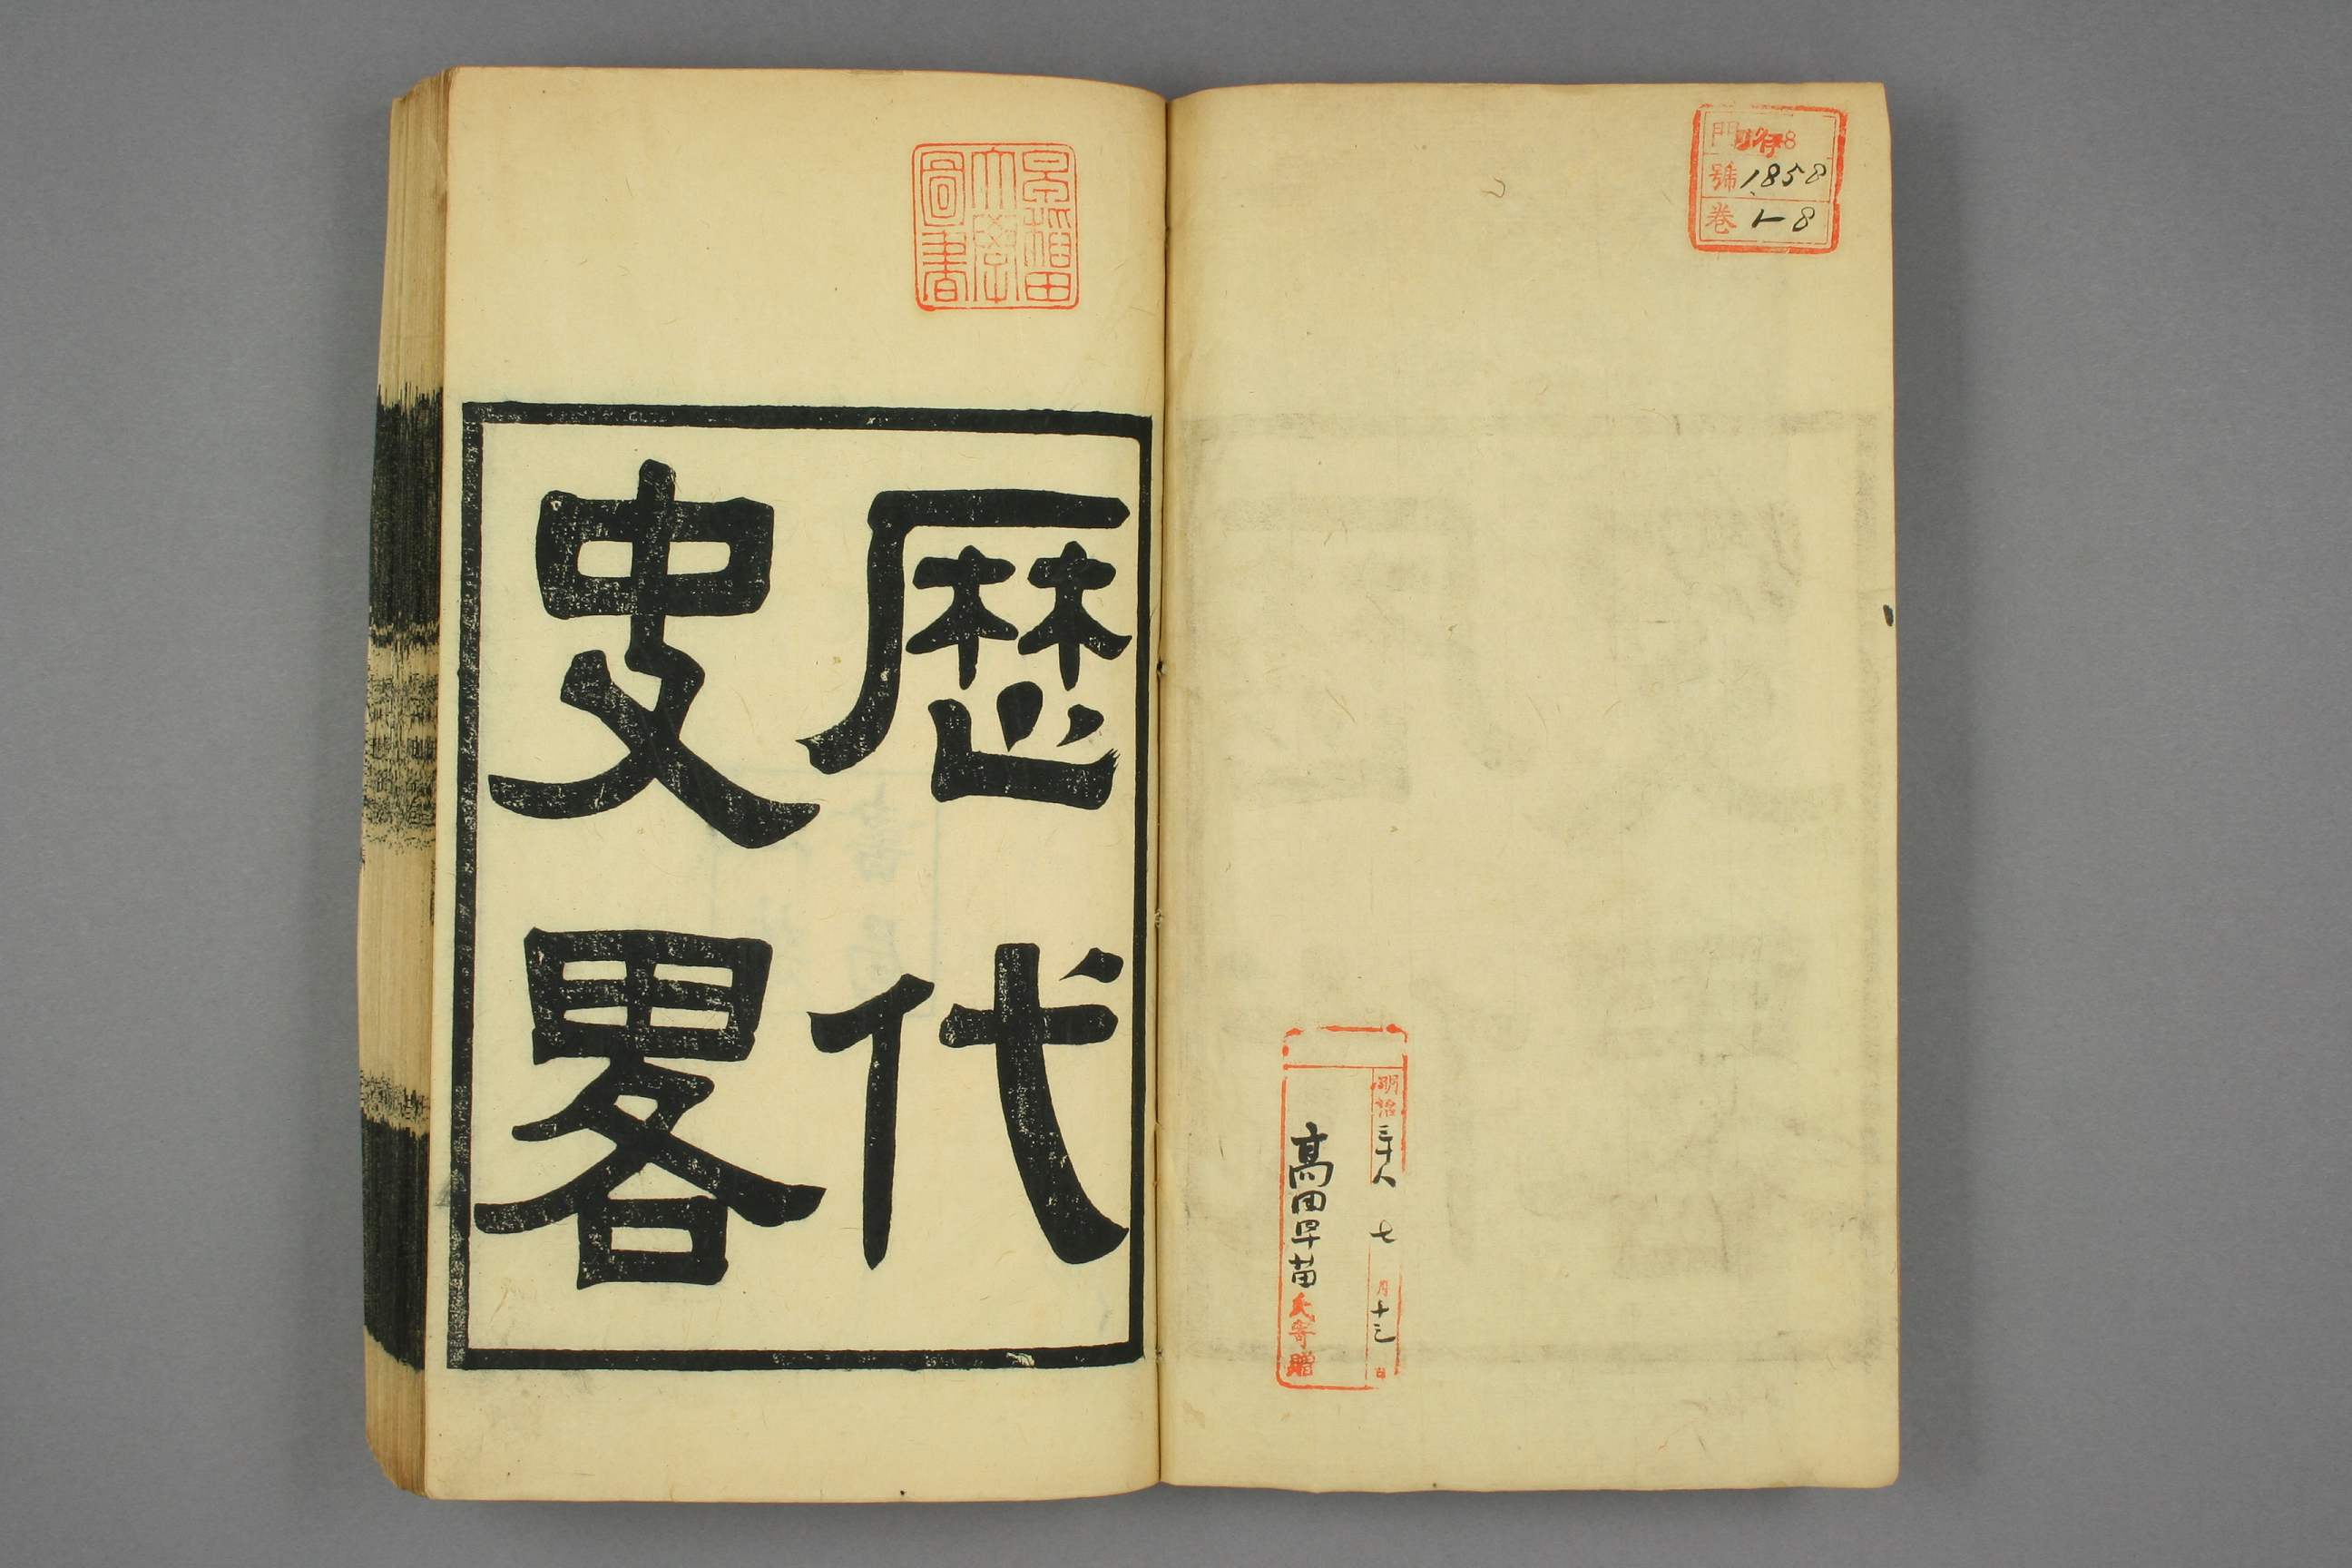 門 8
號 1858
卷 1-8
明治三十八 七月十三日
高田早苗氏寄贈
早稲田
大學
圖書
歷代
史畧